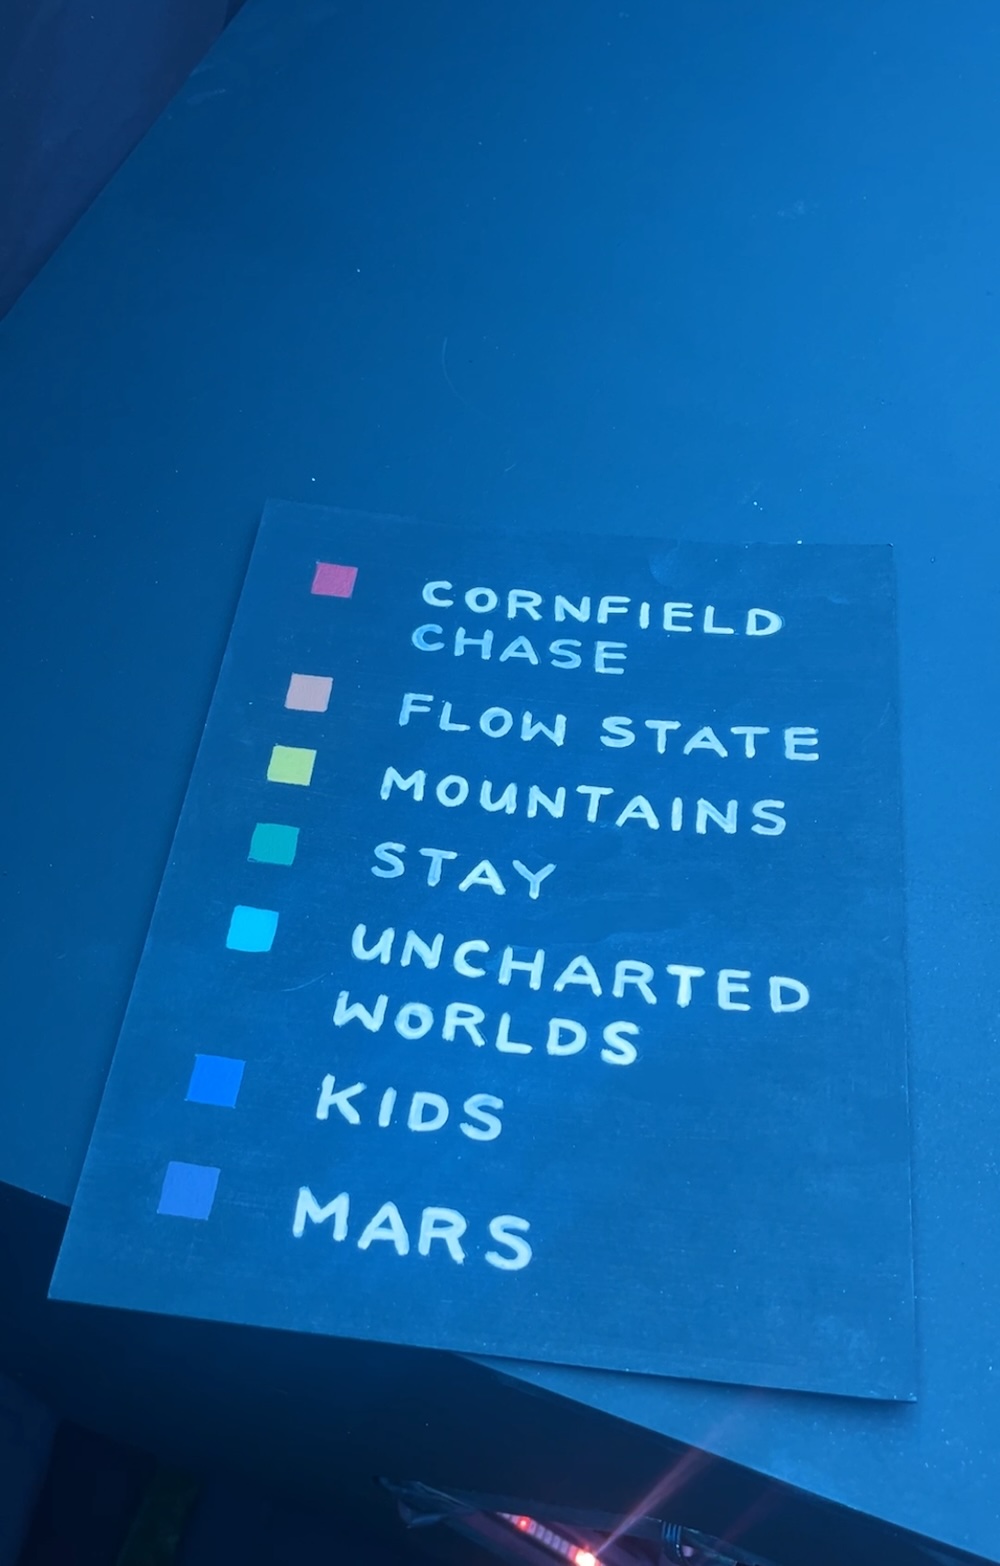 CORNFIELD
CHASE
FLOW STATE
MOUNTAINS
STAY
UNCHARTED
WORLDS
KIDS
MARS